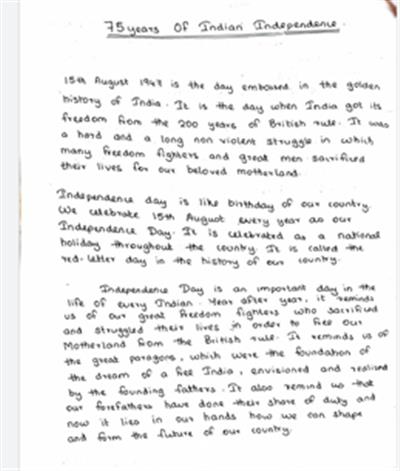 75 years Of Indian Independence.
15th August 1947 is the day embossed in the golden
history of India. It is the day when India got its
freedom from the 200 years of British rule. It was
a hard and a long non violent struggle in which
many freedom fighters and great men sacrificed
their lives for our beloved motherland.
Independence day is like birthday of our country.
We celebrate 15th August every year as our
Independence Day. It is celebrated as a national
holiday throughout the country. It is called the
red-letter day in the history of our country.
Independence Day is an important day in the
life of every Indian. Year after year, it reminds
us of our great freedom fighters who sacrificed
and struggled their lives in order to free our
Motherland from the British rule. It reminds us of
the great paragons, which were the foundation of
the dream of a free India, envisioned and realised
by the founding fathers. It also remind us that
our forefathers have done their share of duty and
now it lies in our hands how we can shape
and form the future of our country.